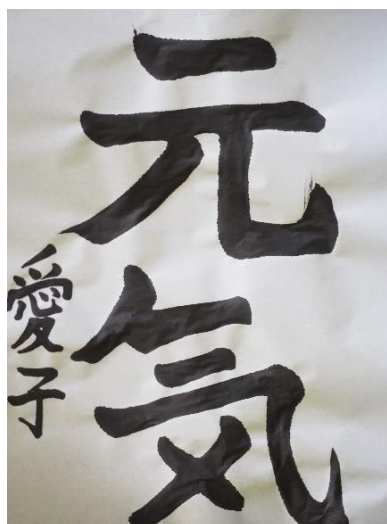 元気
愛子